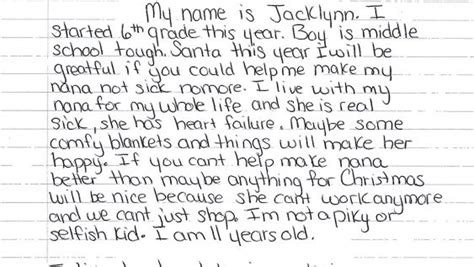 My name is Jacklynn. I
started 6th grade this year. Boy is middle
school tough. Santa this year I will be
greatful if you could help me make my
nana not sick nomore. I live with my
nana for my whole life and she is real
sick, she has heart failure. Maybe some
comfy blankets and things will make her
happy. If you cant help make nana
better than maybe anything for Christmas
will be nice because she cant work anymore
and we cant just shop. Im not a piky or
selfish kid. I am 11 years old.